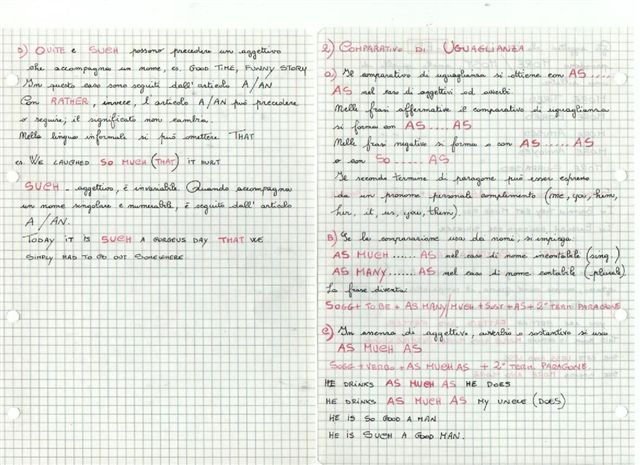 D) QUITE e SUCH possono precedere un aggettivo
che accompagna un nome, es. GOOD TIME, FUNNY STORY
In questo caso sono seguiti dall'articolo A/AN
Con RATHER, invece, l'articolo A/AN può precedere
o seguire; il significato non cambia.
Nella lingua informale si può omettere THAT
es. WE LAUGHED SO MUCH (THAT) IT HURT
SUCH - aggettivo, è invariabile. Quando accompagna
un nome singolare e numerabile, è seguito dall'articolo
A/AN.
TODAY IT IS SUCH A GORGEUS DAY THAT WE
SIMPLY HAD TO GO OUT SOMEWHERE
2) COMPARATIVO DI UGUAGLIANZA
a) Il comparativo di uguaglianza si ottiene con AS ....
AS nel caso di aggettivi ed avverbi
Nelle frasi affermative il comparativo di uguaglianza
si forma con AS .... AS
Nelle frasi negative si forma o con AS ..... AS
o con SO ..... AS
Il secondo termine di paragone può esser espresso
da un pronome personale complemento (me, you, him,
her, it, us, you, them).
B) Se la comparazione usa dei nomi, si impiega
AS MUCH ...... AS nel caso di nome incontabile (sing.)
AS MANY ...... AS nel caso di nome contabile (plurale).
La frase diventa:
SOGG + TO BE + AS MANY/MUCH + SOST + AS + 2° TERM. PARAGONE
C) In assenza di aggettivo, avverbio o sostantivo si usa
AS MUCH AS
SOGG + VERBO + AS MUCH AS + 2° TERM. PARAGONE
HE DRINKS AS MUCH AS HE DOES
HE DRINKS AS MUCH AS MY UNCLE (DOES)
HE IS SO GOOD A MAN
HE IS SUCH A GOOD MAN.